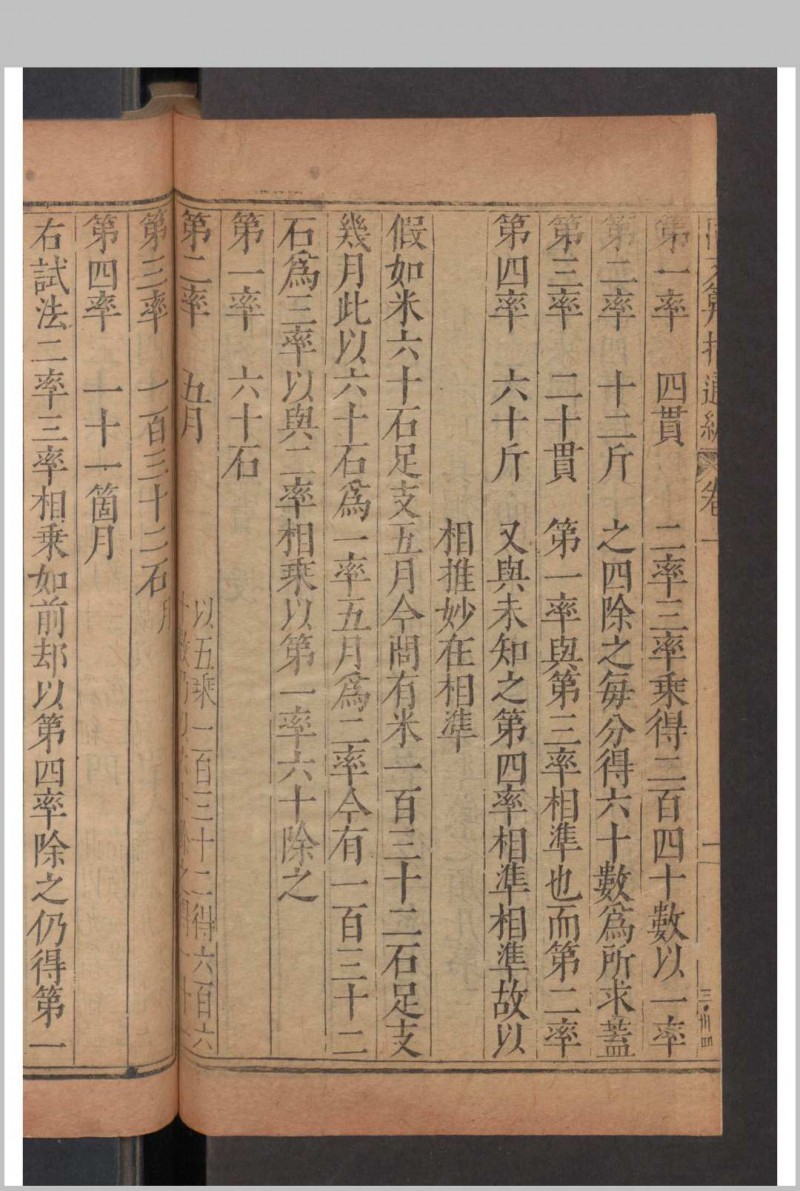 同文算指通編 卷一 一
第一率 四貫 二率三率乘得二百四十數以一率
第二率 十二斤 之四除之每分得六十數爲所求蓋
第三率 二十貫 第一率與第三率相準也而第二率
第四率 六十斤 又與未知之第四率相準相準故以
相推妙在相準
假如米六十石足支五月今問有米一百三十二石足支
幾月此以六十石爲一率五月爲二率今有一百三十二
石爲三率以與二率相乘以第一率六十除之
第一率 六十石
第二率 五月 以五乘一百三十二得六百六
第三率 一百三十二石
第四率 一十一箇月
右試法二率三率相乘如前却以第四率除之仍得第一